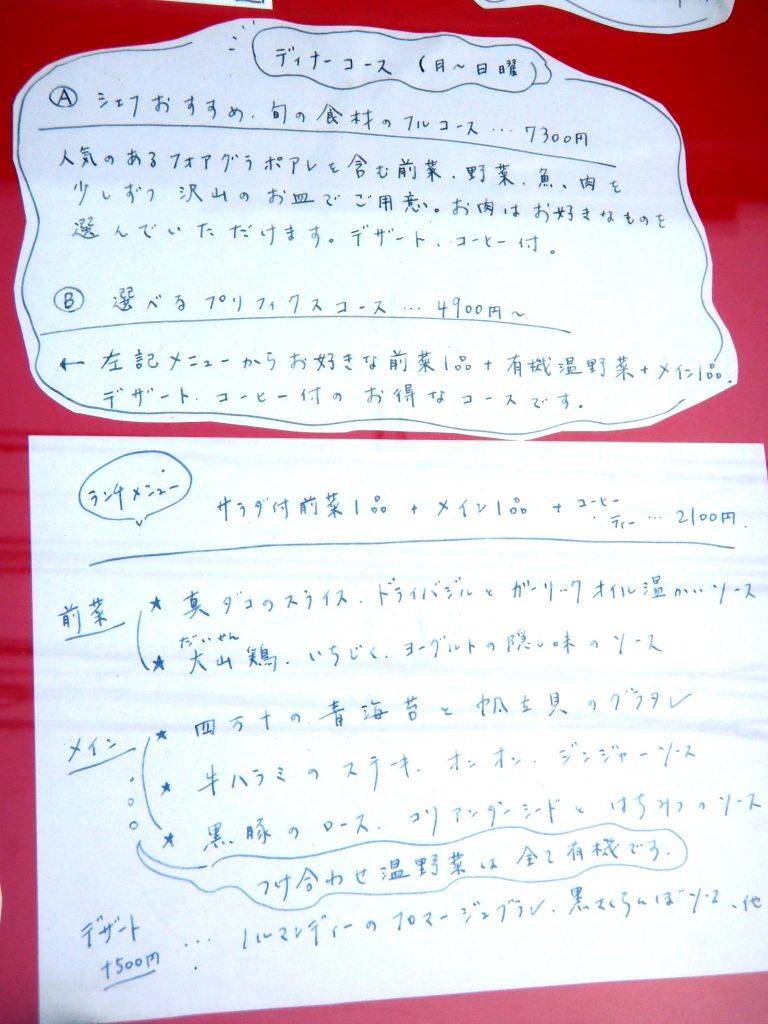 ディナーコース (月〜日曜)
Ⓐ シェフおすすめ、旬の食材のフルコース … 7300円
人気のあるフォアグラポアレを含む前菜、野菜、魚、肉を
少しずつ 沢山のお皿でご用意。お肉はお好きなものを
選んでいただけます。デザート、コーヒー付。
Ⓑ 選べるプリフィクスコース … 4900円〜
← 左記メニューからお好きな前菜1品+有機温野菜+メイン1品。
デザート、コーヒー付のお得なコースです。
ランチメニュー
サラダ付前菜1品 + メイン1品 + コーヒー・ティー … 2100円.
前菜
★ 真ダコのスライス、ドライバジルとガーリックオイル温かいソース
だいせん
★ 大山鶏、いちじく、ヨーグルトの隠し味のソース
メイン
★ 四万十の青海苔と帆立貝のグラタン
★ 牛ハラミのステーキ、オニオン、ジンジャーソース
★ 黒豚のロース、コリアンダーシードとはちみつのソース
つけ合わせ温野菜は全て有機です。
デザート … ノルマンディーのフロマージュブラン、黒さくらんぼソース、他
+500円